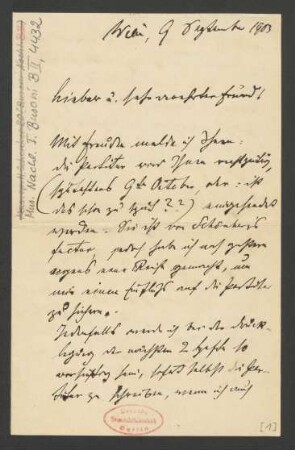 Wien, 9 September 1903
Lieber u. sehr verehrter Freund!
Mit Freude melde ich Ihnen:
die Partitur wird Ihnen rechtzeitig,
(spätestens 9ten October, oder: ist
das schon zu spät??) eingesendet
werden. Sie ist von Schönbergs
factur, jedoch habe ich
eine Reise gemacht, um
mir einen Einfluss auf die Partitur
zu sichern.
Jedenfalls werde ich bei der Druck-
legung der nächsten 2 Hefte so
vorsichtig sein, selbst die Par-
titur zu schreiben, wenn ich auch
[1]
Mus. Nachl. F. Busoni B II, 4432